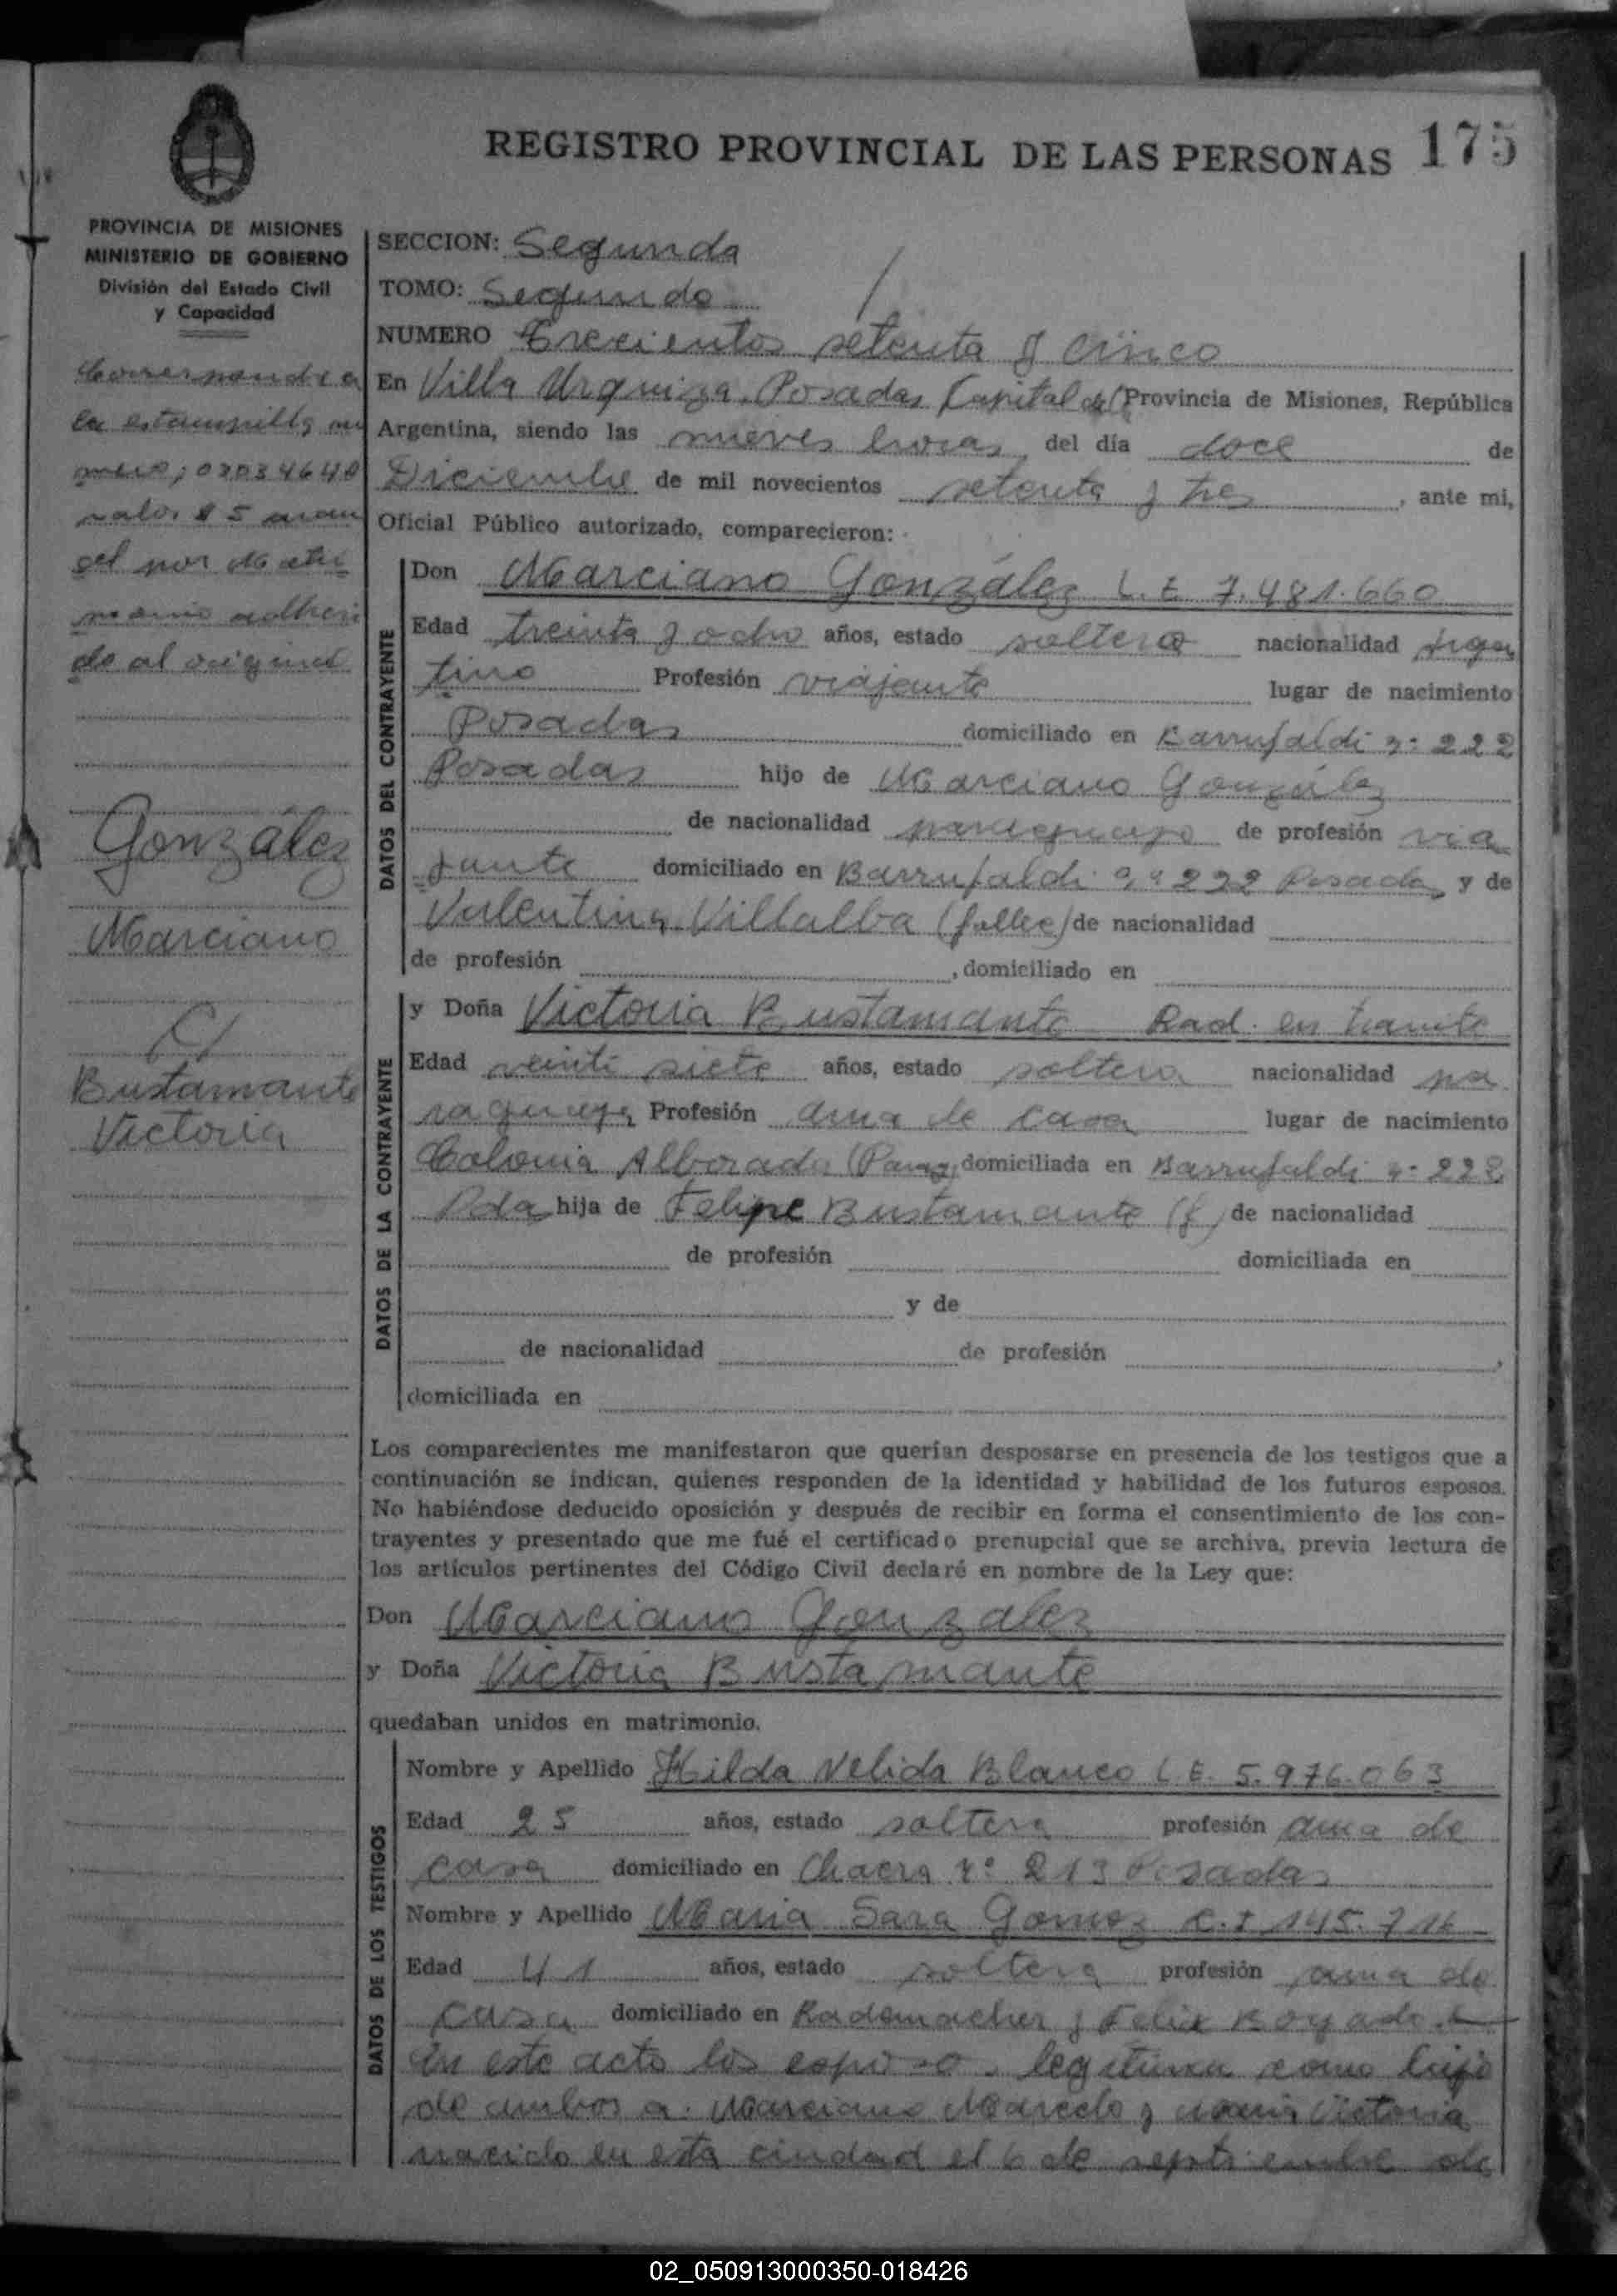 REGISTRO PROVINCIAL DE LAS PERSONAS 175
PROVINCIA DE MISIONES
MINISTERIO DE GOBIERNO
División del Estado Civil
y Capacidad
Corresponde a
la estampilla nu
mero; 02034640
valor $ 5 aran
cel por Matri
monio adheri
do al original
González
Marciano
C/
Bustamante
Victoria
SECCION: Segunda
TOMO: Segundo
NUMERO Trecientos setenta y cinco
En Villa Urquiza, Posadas, Capital de (Provincia de Misiones, República
Argentina, siendo las nueves horas, del día doce de
Diciembre de mil novecientos setenta y tres, ante mi,
Oficial Público autorizado, comparecieron:
DATOS DEL CONTRAYENTE
Don Marciano González L.E. 7.481.660
Edad treinta y ocho años, estado soltero nacionalidad Argen
tino Profesión viajante lugar de nacimiento
Posadas domiciliado en Barrufaldi nº 222
Posadas hijo de Marciano González
de nacionalidad paraguayo de profesión via
jante domiciliado en Barrufaldi nº 222 Posadas y de
Valentina Villalba (fallec) de nacionalidad
de profesión , domiciliado en
DATOS DE LA CONTRAYENTE
y Doña Victoria Bustamante Rad. en tramite
Edad veinti siete años, estado soltera nacionalidad pa
raguaya Profesión ama de casa lugar de nacimiento
Colonia Alborada (Parag) domiciliada en Barrufaldi nº 222
Pdas hija de Felipe Bustamante (f) de nacionalidad
de profesión domiciliada en
y de
de nacionalidad de profesión ,
domiciliada en
Los comparecientes me manifestaron que querían desposarse en presencia de los testigos que a
continuación se indican, quienes responden de la identidad y habilidad de los futuros esposos.
No habiéndose deducido oposición y después de recibir en forma el consentimiento de los con-
trayentes y presentado que me fué el certificado prenupcial que se archiva, previa lectura de
los artículos pertinentes del Código Civil declaré en nombre de la Ley que:
Don Marciano Gonzalez
y Doña Victoria Bustamante
quedaban unidos en matrimonio.
DATOS DE LOS TESTIGOS
Nombre y Apellido Hilda Nelida Blanco L.E. 5.976.063
Edad 25 años, estado soltera profesión ama de
casa domiciliado en Chacra nº 213 Posadas
Nombre y Apellido Maria Sara Gomez C.I 145.716
Edad 41 años, estado soltera profesión ama de
casa domiciliado en Rademacher y Felix Bogado
En este acto los esposo legitiman como hijo
de ambos a. Marciano Marcelo y María Victoria
nacido en esta ciudad el 6 de septiembre de
02_050913000350-018426